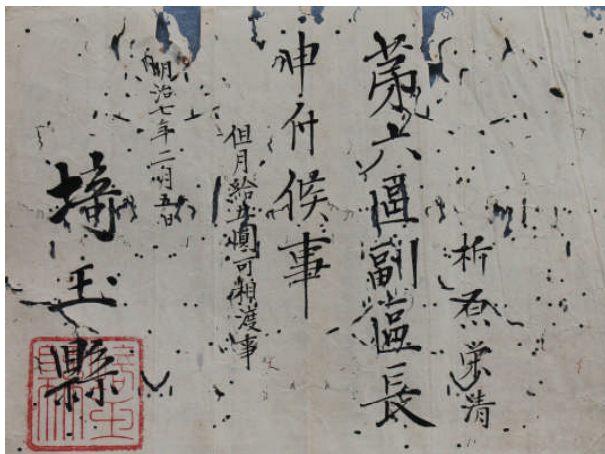 折原栄清
第六區副區長
申付候事
但月給五圓可相渡事
明治七年二月五日
埼玉縣
埼玉
縣